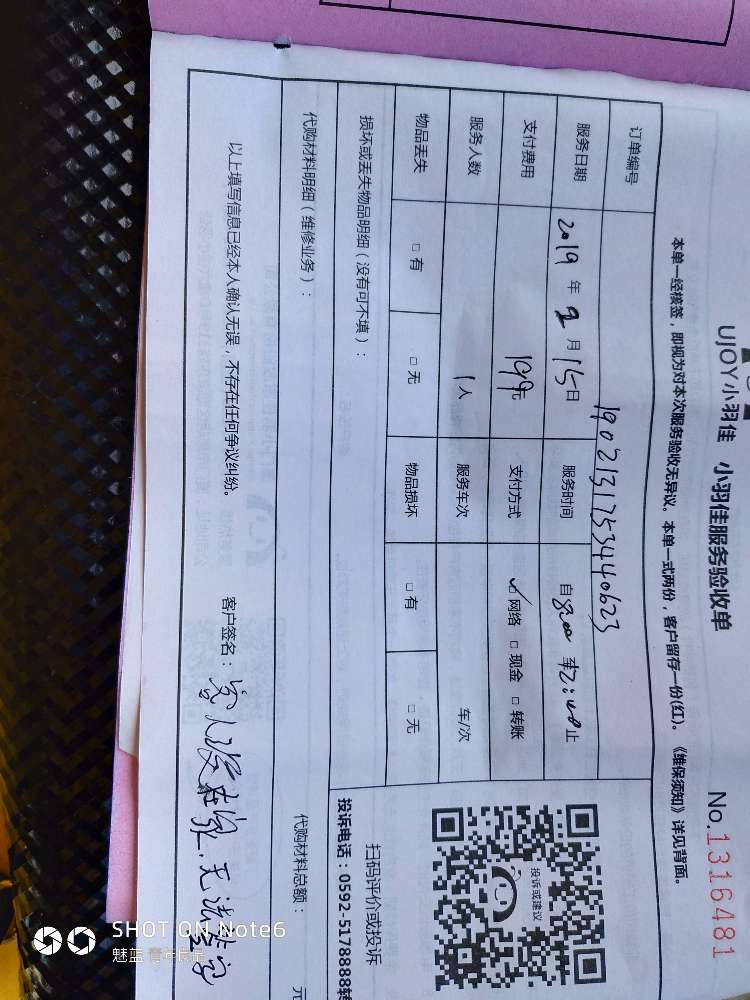 UJOY小羽佳 小羽佳服务验收单
No.1316481
本单一经核签，即视为对本次服务验收无异议。本单一式两份，客户留存一份(红)。《维保须知》详见背面。
订单编号 1902131753440623
服务日期 2019 年 2 月 15 日 服务时间 自 8:00 至 12:00 止
支付费用 199元 支付方式 ☑ 网络 □ 现金 □ 转账
服务人数 1人 服务车次 车/次
物品丢失 □ 有 □ 无 物品损坏 □ 有 □ 无
损坏或丢失物品明细（没有可不填）：
代购材料明细（维修业务）：
代购材料总额： 元
以上填写信息已经本人确认无误，不存在任何争议纠纷。
客户签名：客人没在家.无法签
投诉或建议
扫码评价或投诉
投诉电话：0592-5178888转
SHOT ON Note6
魅蓝 青年良品